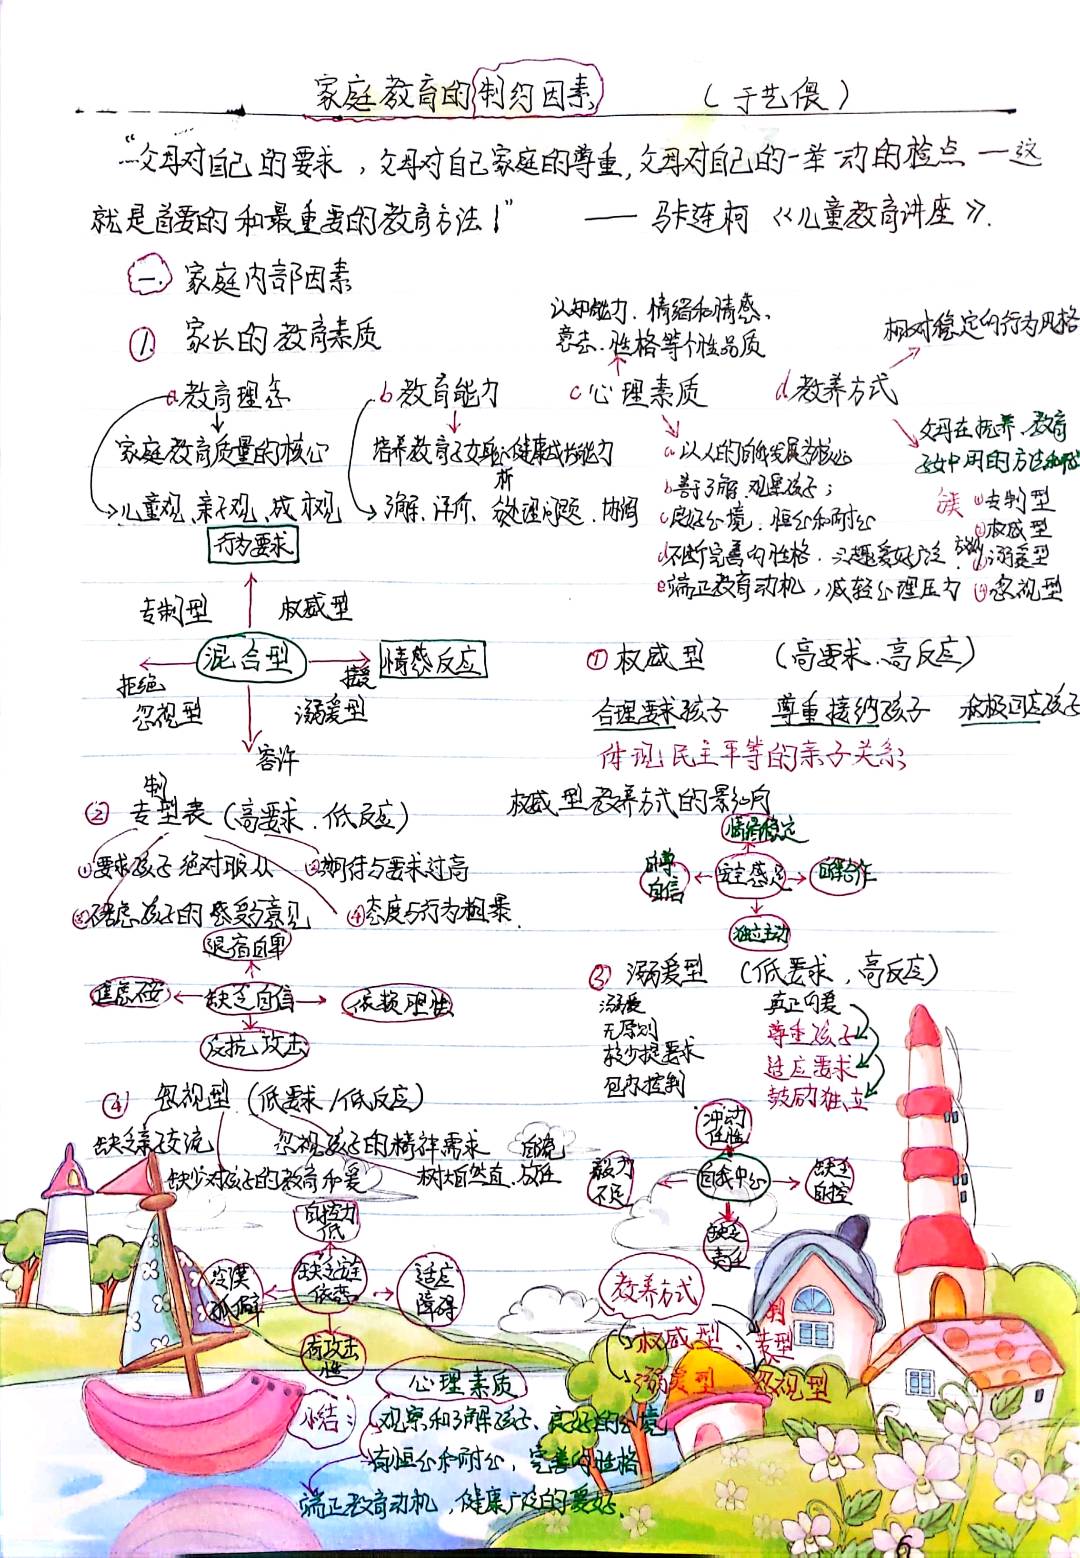 家庭教育的制约因素 （于艺偎）
“父母对自己的要求，父母对自己家庭的尊重，父母对自己的一举一动的检点 — 这
就是首要的和最重要的教育方法！” —— 马卡连柯《儿童教育讲座》.
一. 家庭内部因素
认知能力、情绪和情感、
意志、性格等个性品质
相对稳定的行为风格
1. 家长的教育素质
a教育理念 b教育能力 c心理素质 d教养方式
家庭教育质量的核心
培养教育子女身心健康成长能力
父母在抚养、教育
子女中用的方法和
儿童观、亲子观、成才观
了解、评价、分析处理问题、协调
a以人的自我发展为核心
b善于了解观察孩子；
c良好心境、恒心和耐心
d不断完善的性格、兴趣爱好广泛
e端正教育动机，减轻心理压力
①专制型
②权威型
③溺爱型
④忽视型
行为要求
专制型 权威型
混合型
情感反应
拒绝
接受
忽视型 溺爱型
容许
①权威型 （高要求、高反应）
合理要求孩子 尊重接纳孩子 积极回应孩子
体现民主平等的亲子关系
权威型教养方式的影响
情绪稳定
自尊自信
安全感足
独立主动
②专制型表（高要求、低反应）
①要求孩子绝对服从 ②期待与要求过高
③不考虑孩子的感受与意见 ④态度与行为粗暴.
退宿自卑
焦虑不安
缺乏自信
反抗攻击
③溺爱型 （低要求，高反应）
溺爱
无原则
极少提要求
包办控制
真正的爱
尊重孩子
适应要求
鼓励独立
冲动任性
毅力不足
自我中心
缺乏自控
缺乏责任
④忽视型（低要求/低反应）
缺乏亲子交流 忽视孩子的精神需求
缺少对孩子的教育和爱 树大自然直、放任
自控力低
冷漠孤僻
适应障碍
有攻击性
教养方式
权威型、专制型
溺爱型 忽视型
心理素质
小结：
观察和了解孩子、良好的心境
有恒心和耐心，完善的性格
端正教育动机，健康广泛的爱好.
6